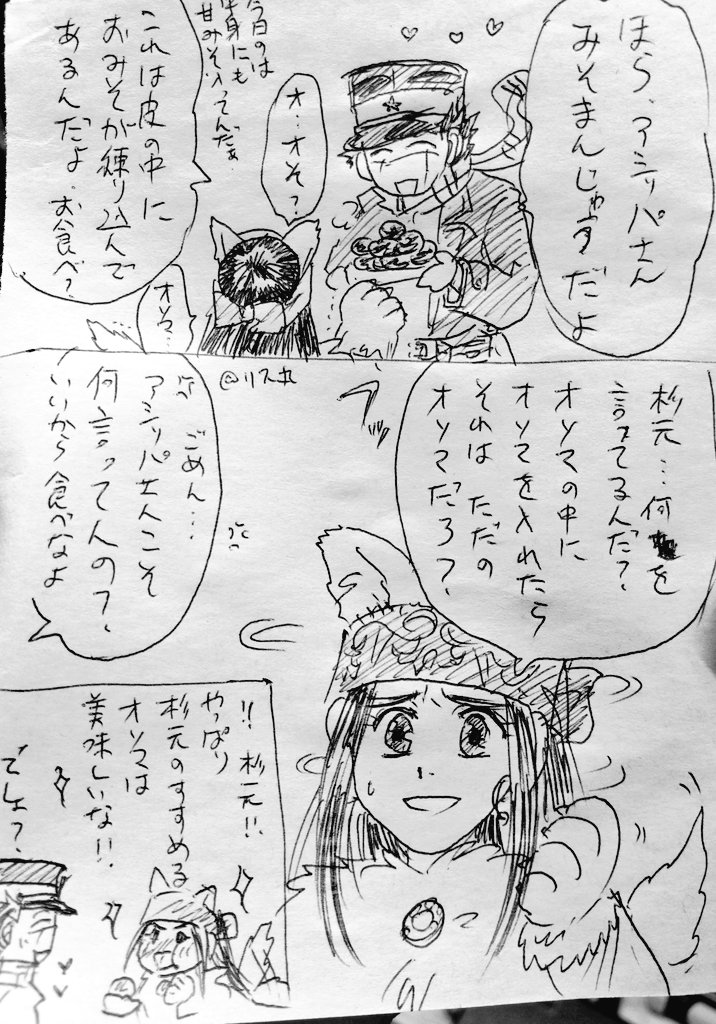 ほら、アシ(リ)パさん
みそまんじゅうだよ
オ…オソ?
今日のは
中身にも
甘みそ入ってんだぁ
これは皮の中に
おみそが練り込んで
あるんだよ。お食べ?
オソマ…
@リス丸
杉元…何を
言ってるんだ?
オソマの中に
オソマを入れたら
それは ただの
オソマだろ?
ごめん…
アシ(リ)パさんこそ
何言ってんの?
いいから食べなよ
!! 杉元!!
やっぱり
杉元のすすめる
オソマは
美味しいな!!
でしょ?